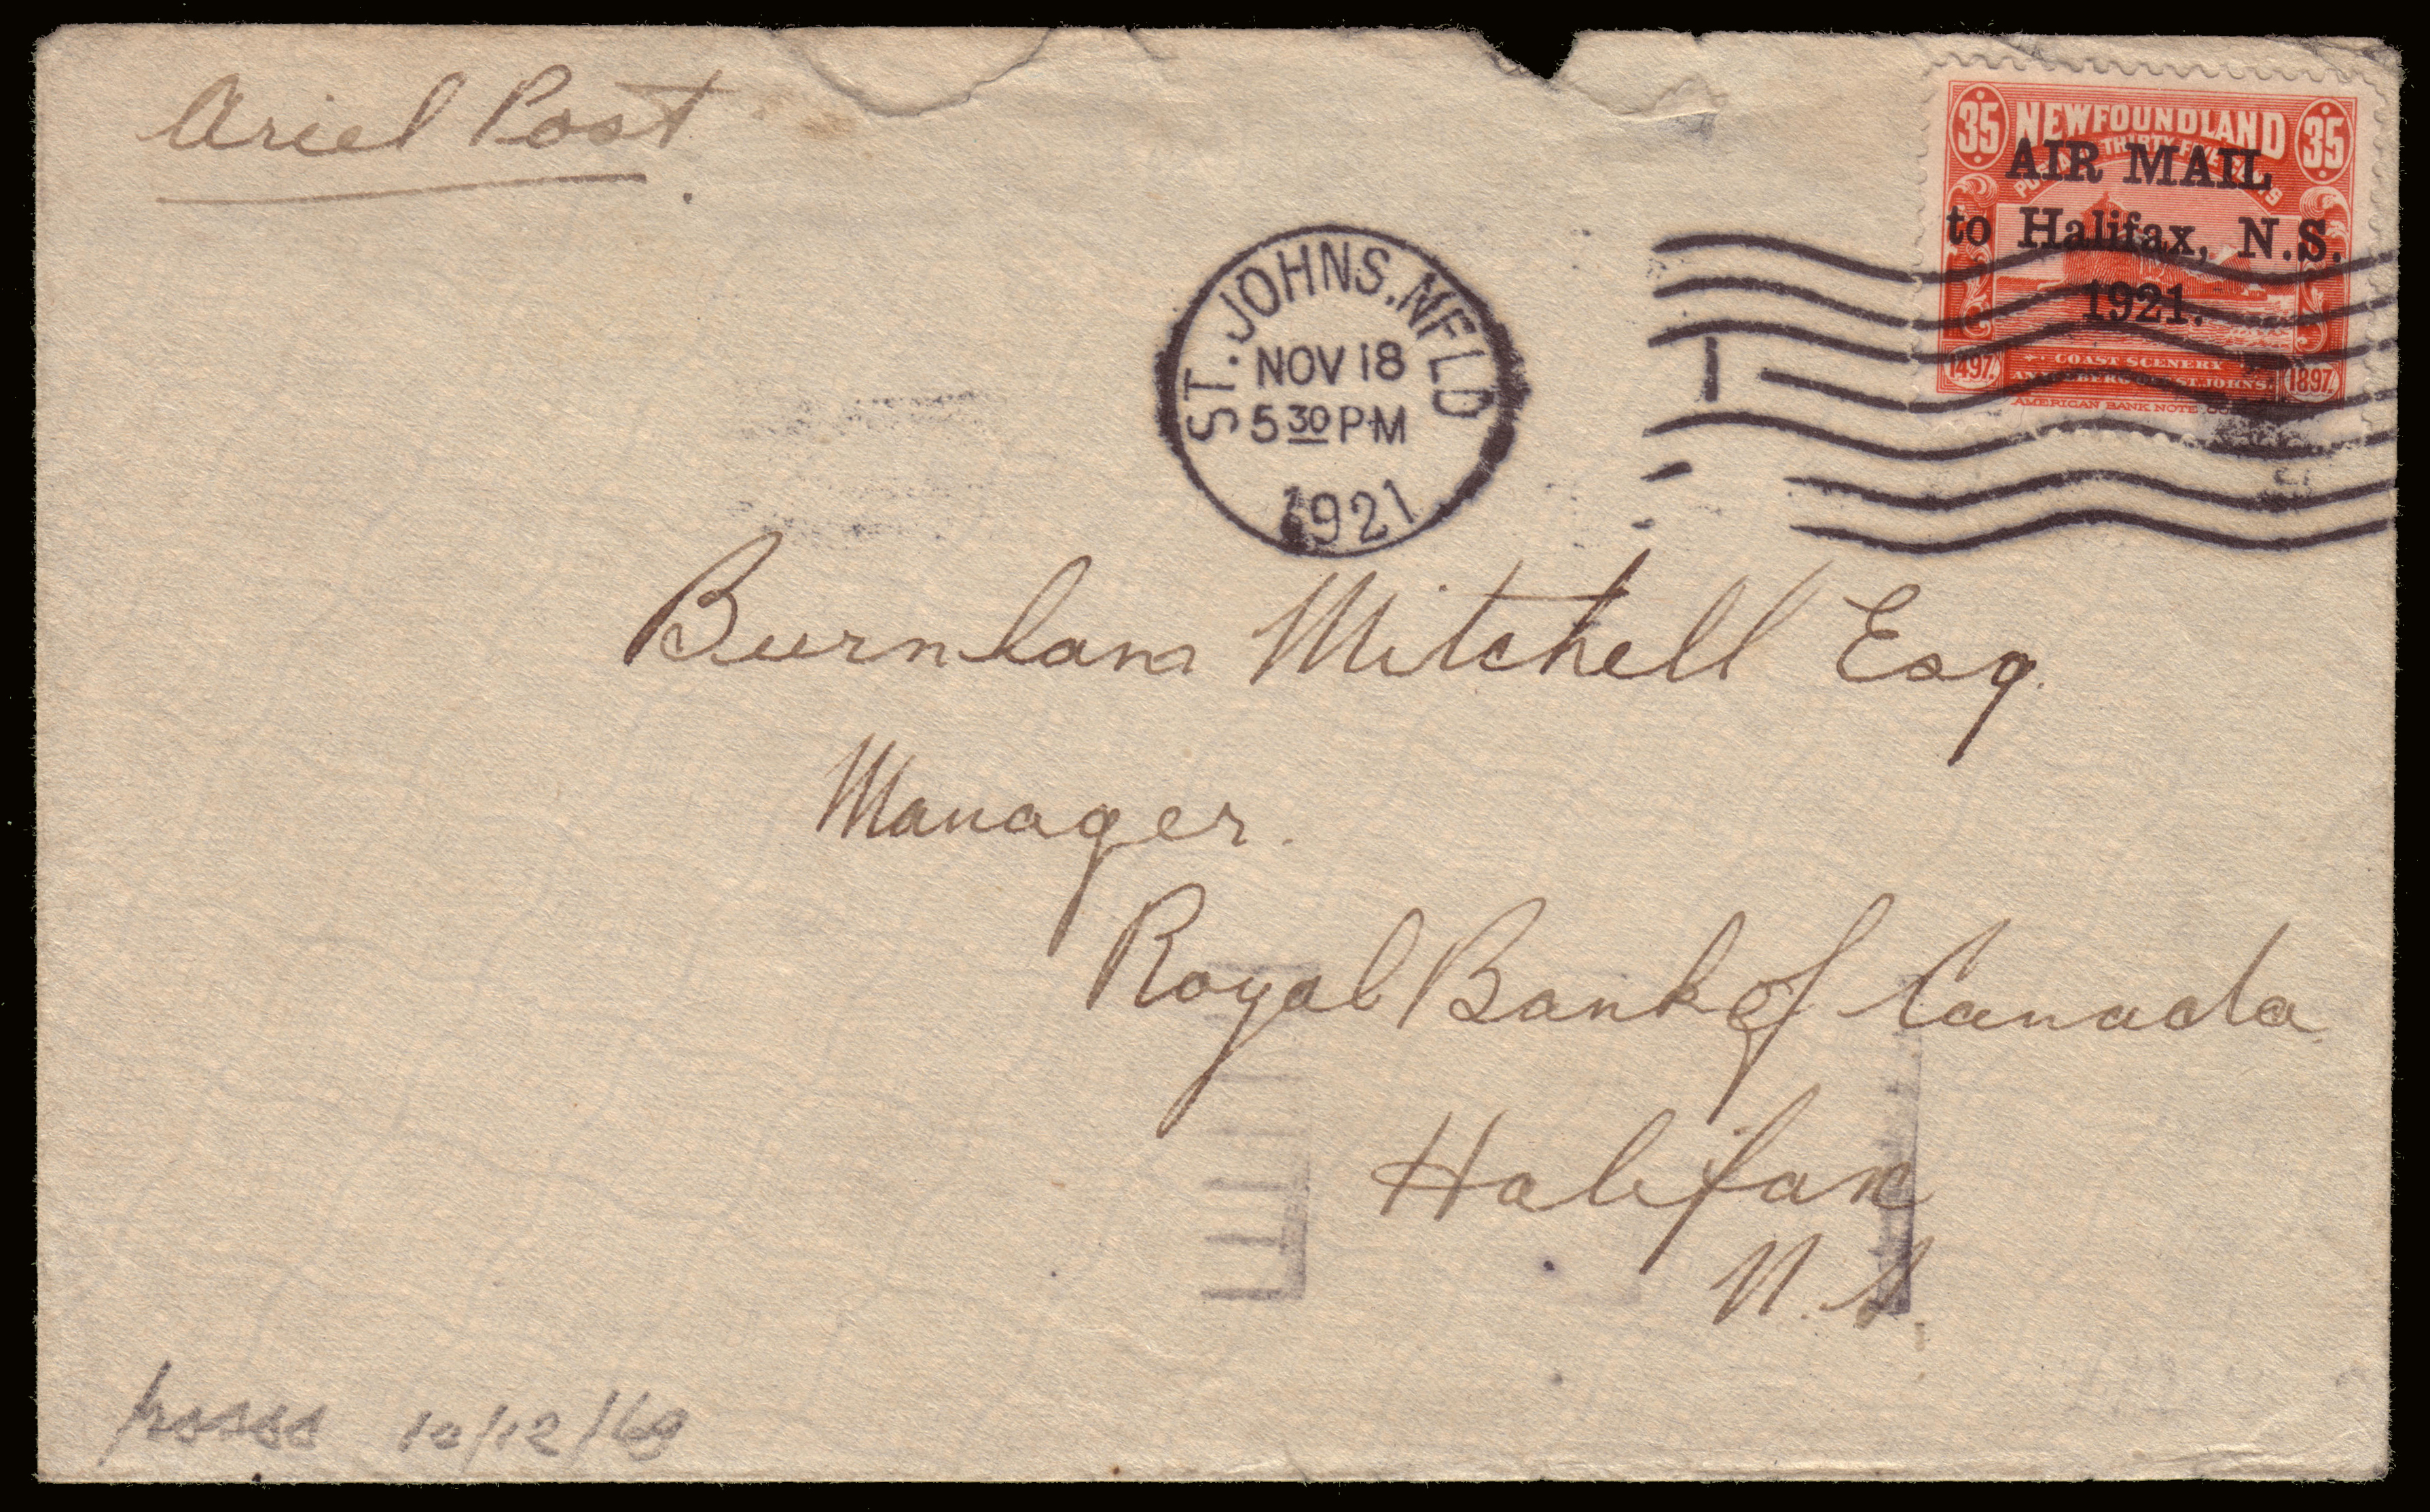 Ariel Post.
35 NEWFOUNDLAND 35
AIR MAIL
to Halifax, N.S.
1921.
1497. COAST SCENERY 1897.
AMERICAN BANK NOTE
ST. JOHNS. NFLD
NOV 18
5 30 PM
1921
Burnham Mitchell Esq.
Manager.
Royal Bank of Canada
Halifax
N.S.